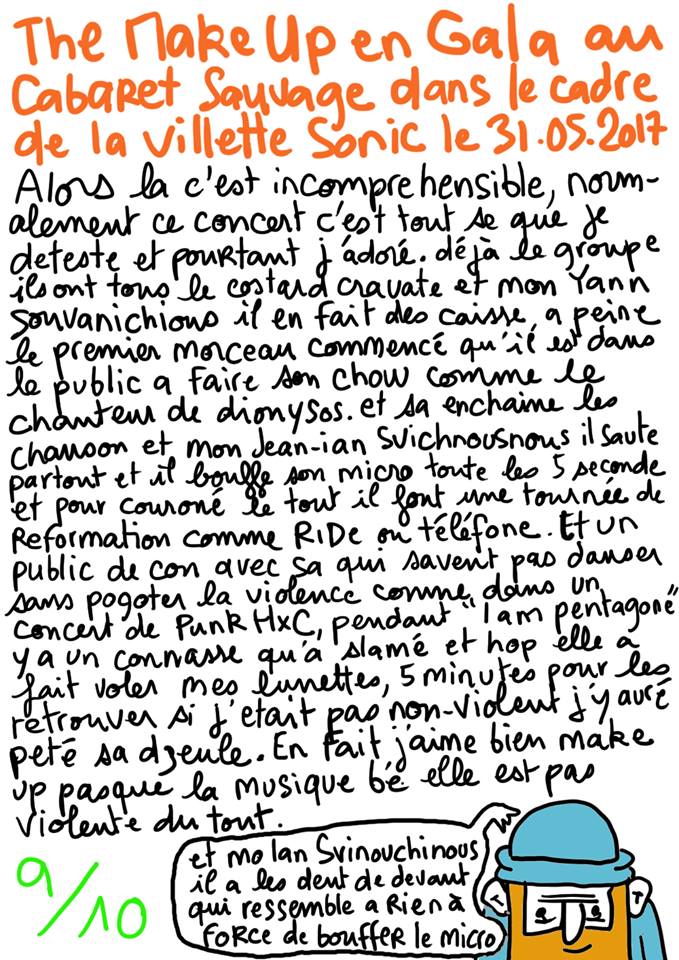 The Make Up en Gala au
Cabaret Sauvage dans le cadre
de la villette Sonic le 31.05.2017
Alors la c'est incomprehensible, norm-
alement ce concert c'est tout se que je
deteste et pourtant j'adoré. déjà le groupe
ils ont tous le costard cravate et mon Yann
Souvanichious il en fait des caisse, a peine
le premier morceau commencé qu'il est dans
le public a faire son chow comme le
chanteur de dionysos. et sa enchaine les
chanson et mon Jean-ian Svichnousnous il saute
partout et il bouffe son micro toute les 5 seconde
et pour couroné le tout il font une tournée de
Reformation comme RIDe ou téléfone. Et un
public de con avec sa qui savent pas danser
sans pogoter la violence comme dans un
concert de Punk HxC, pendant "I am pentagone"
y a un connasse qu'a slamé et hop elle à
fait voler mes lunettes, 5 minutes pour les
retrouver si j'etait pas non-violent j'y auré
peté sa dgeule. En fait j'aime bien make
up pasque la musique bé elle est pas
violente du tout.
9/10
et mo Ian Svinouchinous
il a les dent de devant
qui ressemble a Rien à
force de bouffer le micro